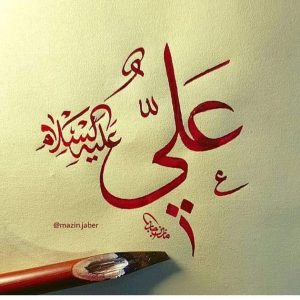 عليّ
عليه السلام
ع
@mazin.jaber